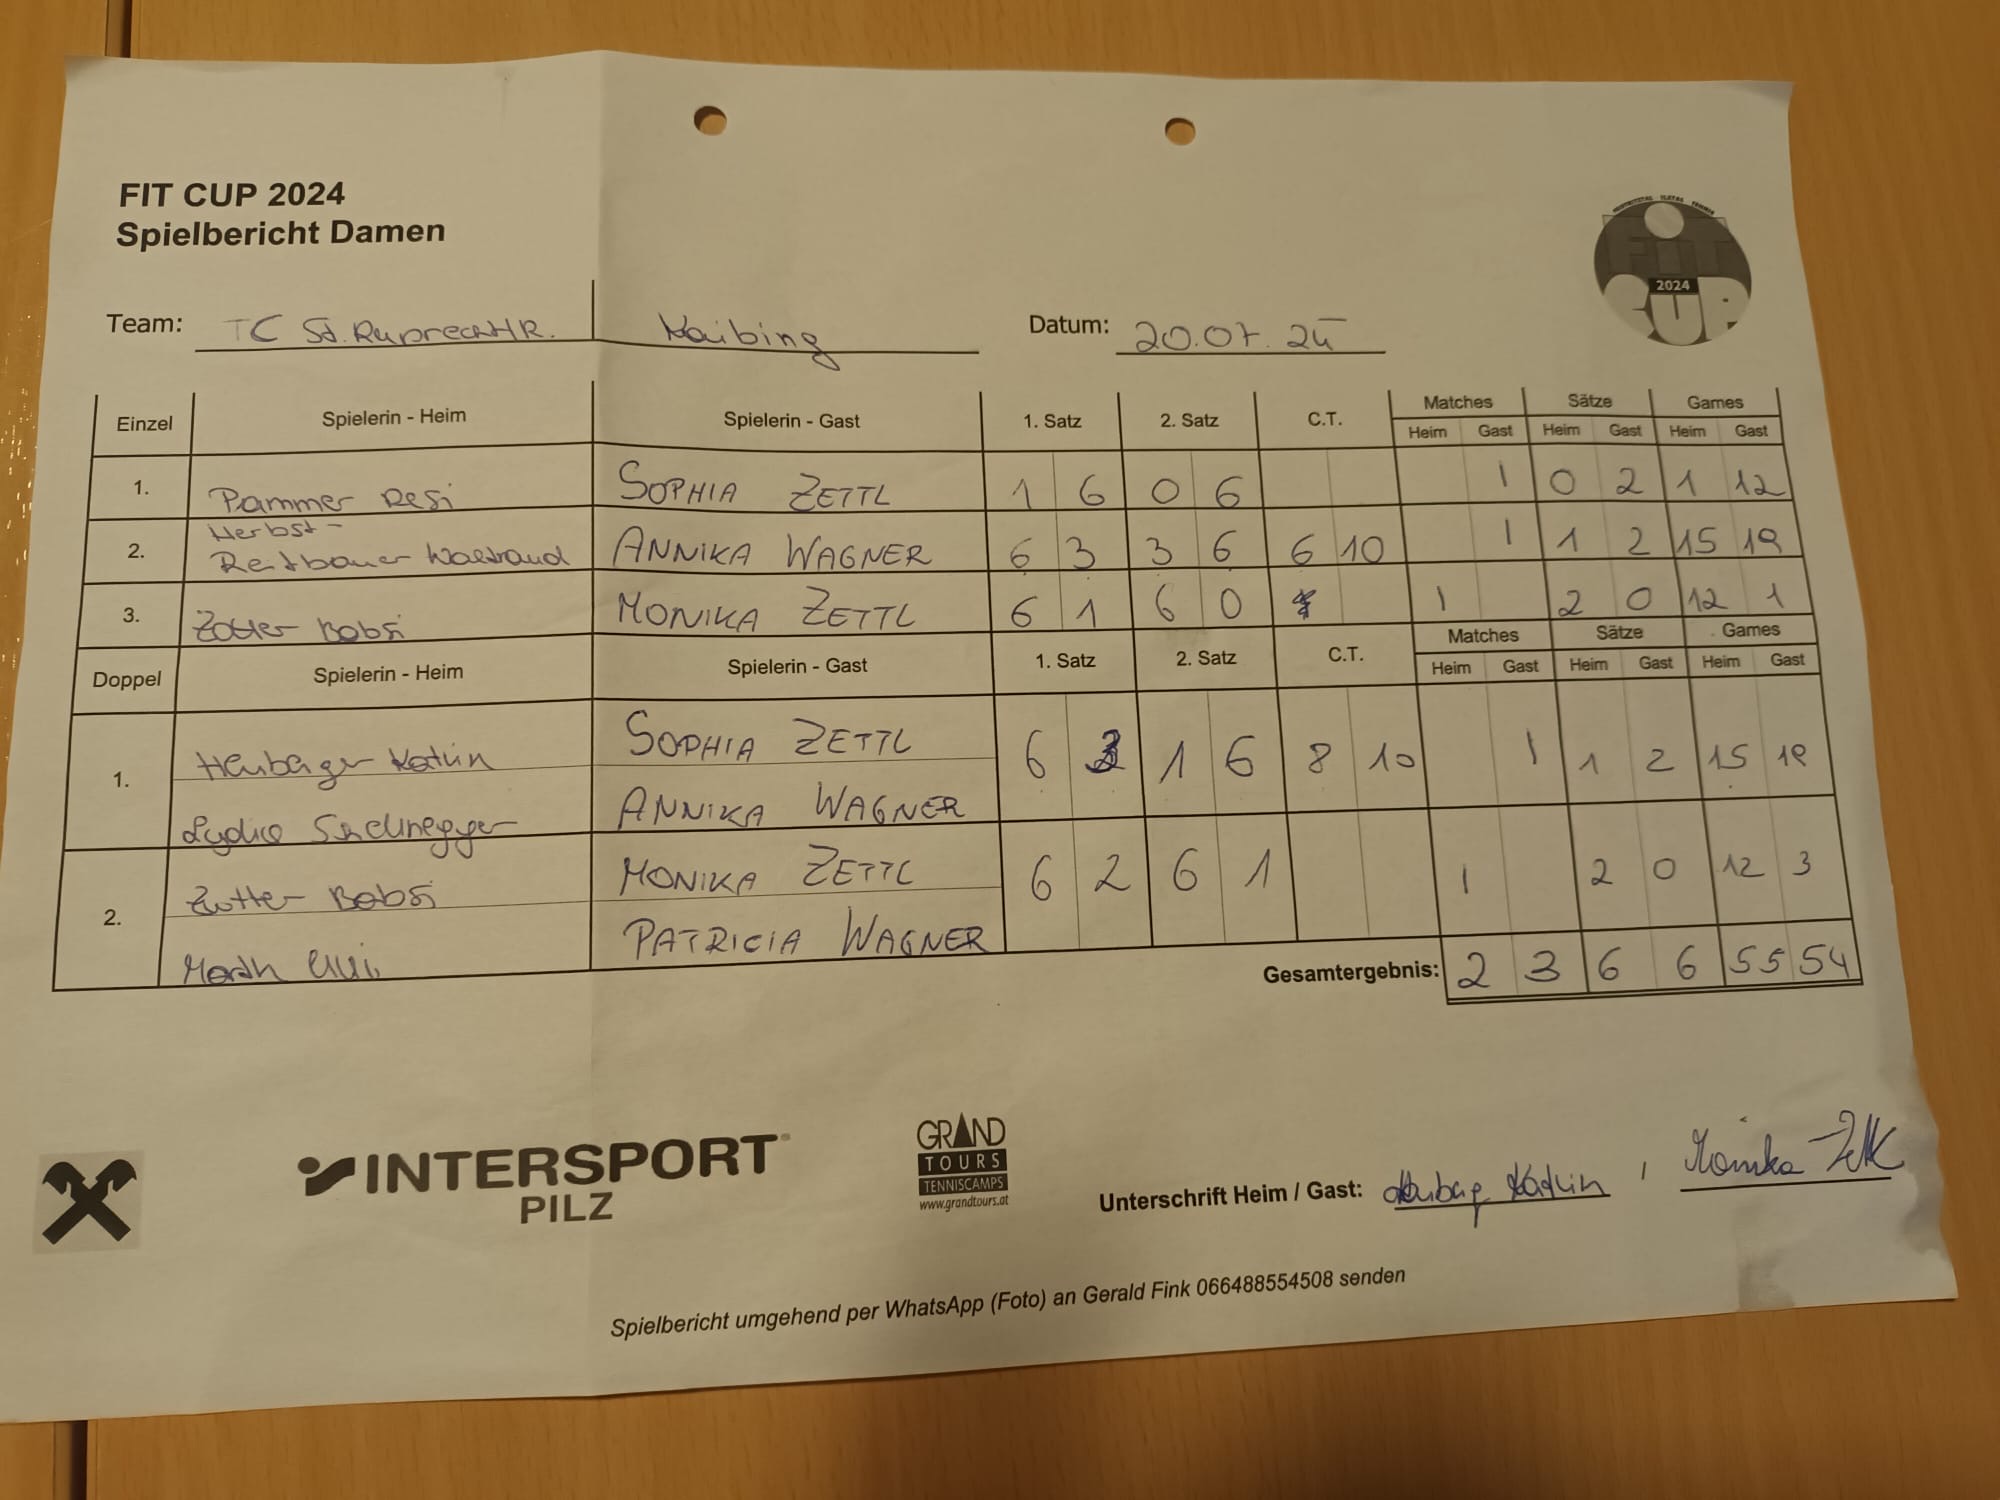 FIT CUP 2024
Spielbericht Damen
FIT CUP 2024
Team: TC St. Ruprecht/R. Kaibing Datum: 20.07.24
Einzel Spielerin - Heim Spielerin - Gast 1. Satz 2. Satz C.T. Matches Sätze Games
Heim Gast Heim Gast Heim Gast
1. Pammer Resi SOPHIA ZETTL 1 6 0 6 1 0 2 1 12
Herbst-
2. Reitbauer Waltraud ANNIKA WAGNER 6 3 3 6 6 10 1 1 2 15 19
3. Zotter Babsi MONIKA ZETTL 6 1 6 0 1 2 0 12 1
Doppel Spielerin - Heim Spielerin - Gast 1. Satz 2. Satz C.T. Matches Sätze Games
Heim Gast Heim Gast Heim Gast
1. Katrin SOPHIA ZETTL 6 3 1 6 8 10 1 1 2 15 19
Lydia ANNIKA WAGNER
2. Zotter Babsi MONIKA ZETTL 6 2 6 1 1 2 0 12 3
PATRICIA WAGNER
Gesamtergebnis: 2 3 6 6 55 54
INTERSPORT
PILZ
GRAND
TOURS
TENNISCAMPS
www.grandtours.at
Unterschrift Heim / Gast: Katrin , Monika Zettl
Spielbericht umgehend per WhatsApp (Foto) an Gerald Fink 066488554508 senden